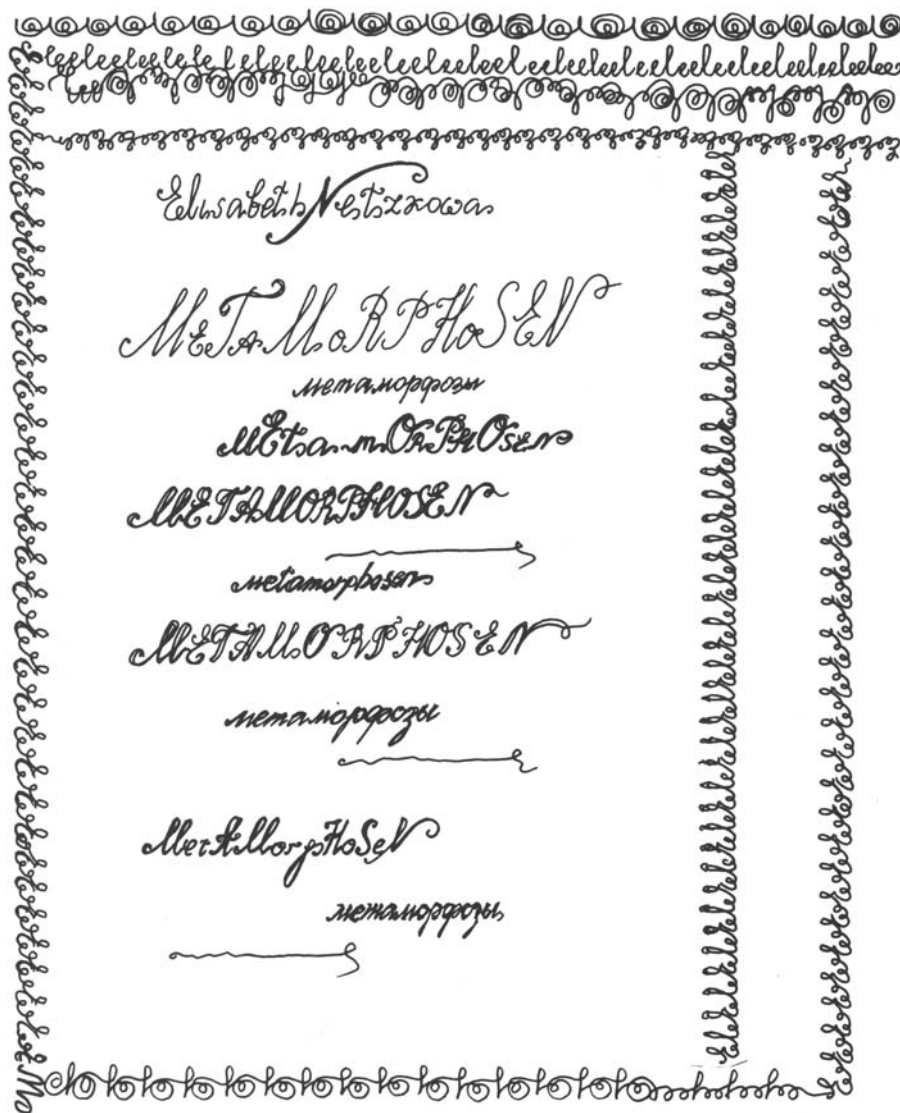 Elisabeth Netzkowa
METAMORPHOSEN
метаморфозы
METamORPHOSEN
METAMORPHOSEN
metamorphosen
METAMORPHOSEN
метаморфозы
MetAMorpHoSeN
метаморфозы